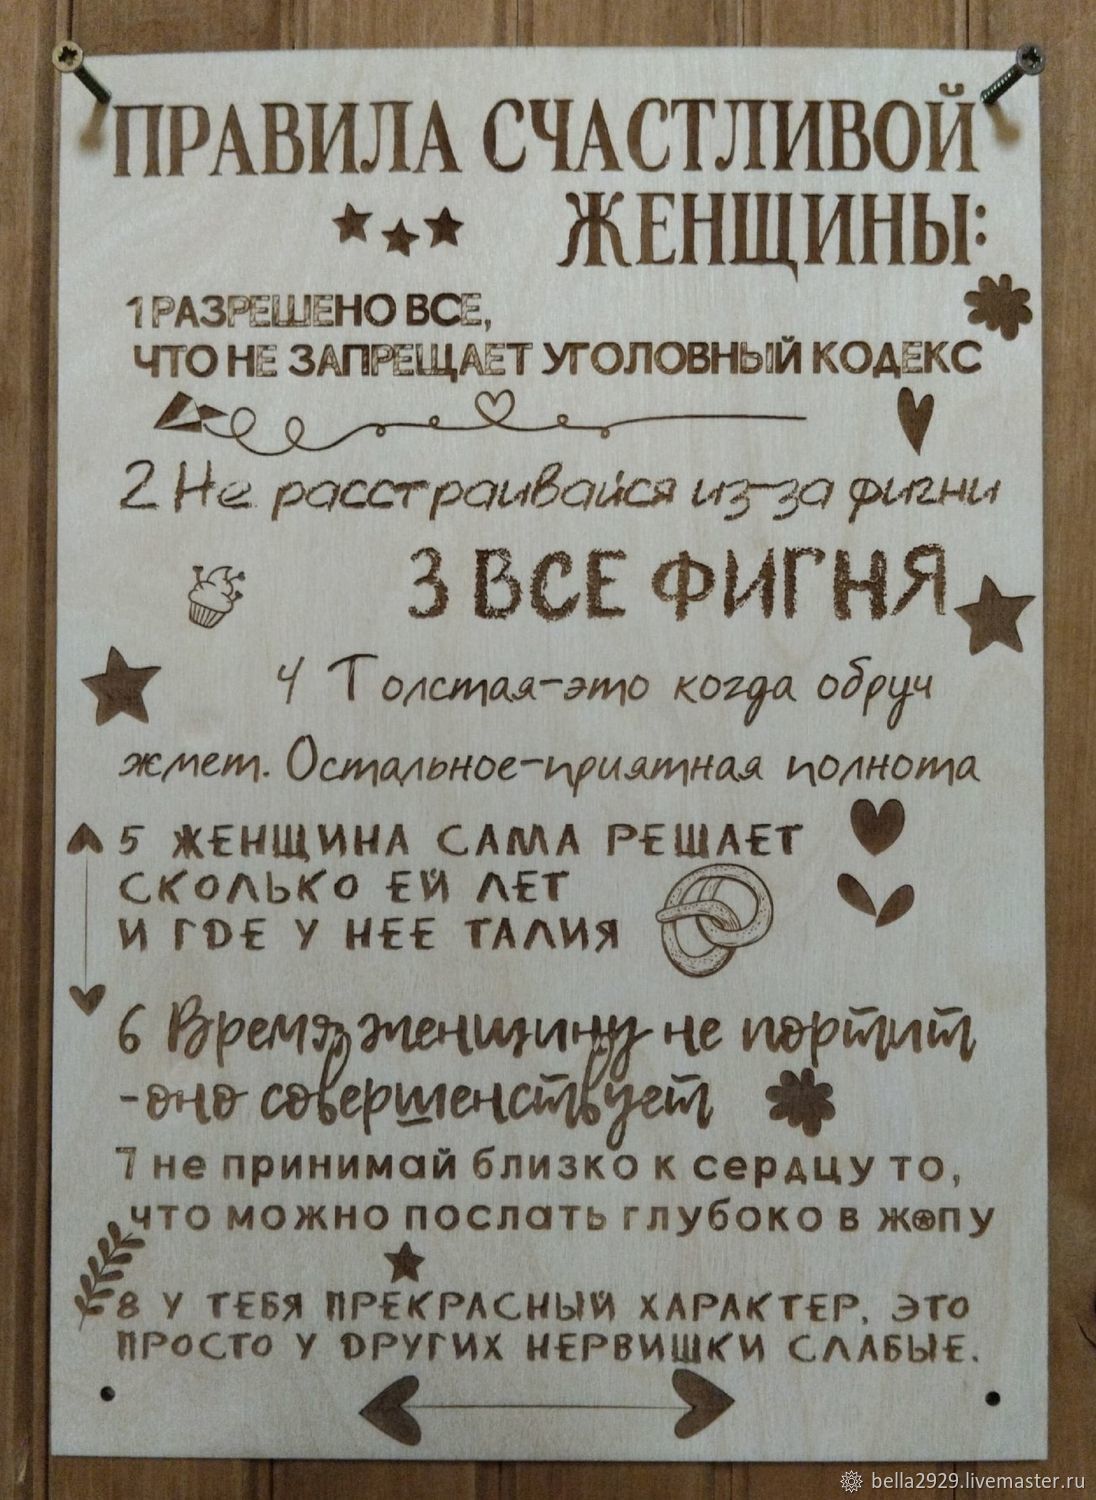 ПРАВИЛА СЧАСТЛИВОЙ
ЖЕНЩИНЫ:
1 РАЗРЕШЕНО ВСЕ,
ЧТО НЕ ЗАПРЕЩАЕТ УГОЛОВНЫЙ КОДЕКС
2 Не расстраивайся из-за фигни
3 ВСЕ ФИГНЯ
4 Толстая-это когда обруч
жмет. Остальное-приятная полнота
5 ЖЕНЩИНА САМА РЕШАЕТ
СКОЛЬКО ЕЙ ЛЕТ
И ГДЕ У НЕЕ ТАЛИЯ
6 Время женщину не портит
-оно совершенствует
7 не принимай близко к сердцу то,
что можно послать глубоко в ж⍟пу
8 У ТЕБЯ ПРЕКРАСНЫЙ ХАРАКТЕР, ЭТО
ПРОСТО У ДРУГИХ НЕРВИШКИ СЛАБЫЕ.
bella2929.livemaster.ru